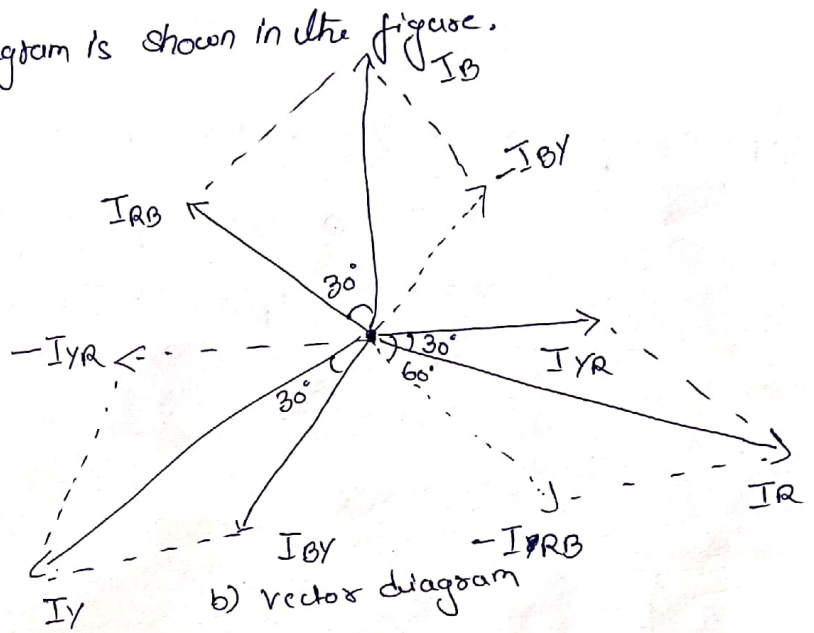 gram is shown in the figure.
IB
-IBY
IRB
30°
-IYR
30°
60°
IYR
30°
IR
IBY
-IRB
IY
b) vector diagram